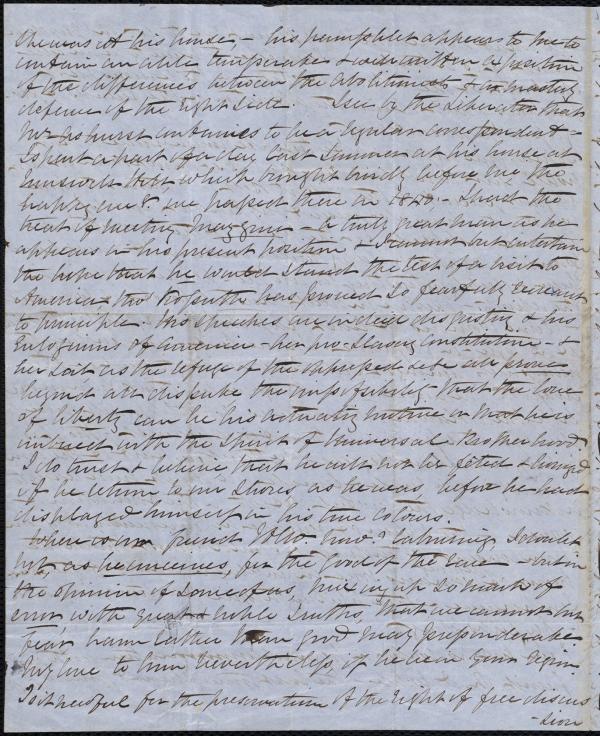 she was at his house, – his pamphlet appears to me to
contain an able temperate & well written exposition
of the differences between the abolitionists & a masterly
defence of the right side. I see by the Liberator that
continues to be a regular correspondent –
I spent a part of a day last summer at his house at
which brought vividly before me the
happy one we passed there in 1840 – I had the
treat of meeting Mazzini – a truly great man as he
appears in his present position & I cannot but entertain
the hope that he would stand the test of a visit to
America tho' Kossuth has proved so fearfully recreant
to principle. His speeches are indeed disgusting & his
Eulogiums of America – her pro-slavery Constitution – &
her soil as the refuge of the oppressed &c &c all prove
beyond all dispute the impossibility that the love
of liberty can be his actuating motive or that he is
imbued with the spirit of Universal Brotherhood
I do trust & believe that he will not be feted & lionized
if he return to our shores, as he was before he had
displayed himself in his true colours.
Where is our friend now? Labouring I doubt
not, as he conceives, for the good of the race – but in
the opinion of some of us, mixing up so much of
error with great & noble truths, that we cannot but
fear harm rather than good may preponderate
My love to him nevertheless, if he be in your region
Is it needful for the preservation of the right of free discus
-sion